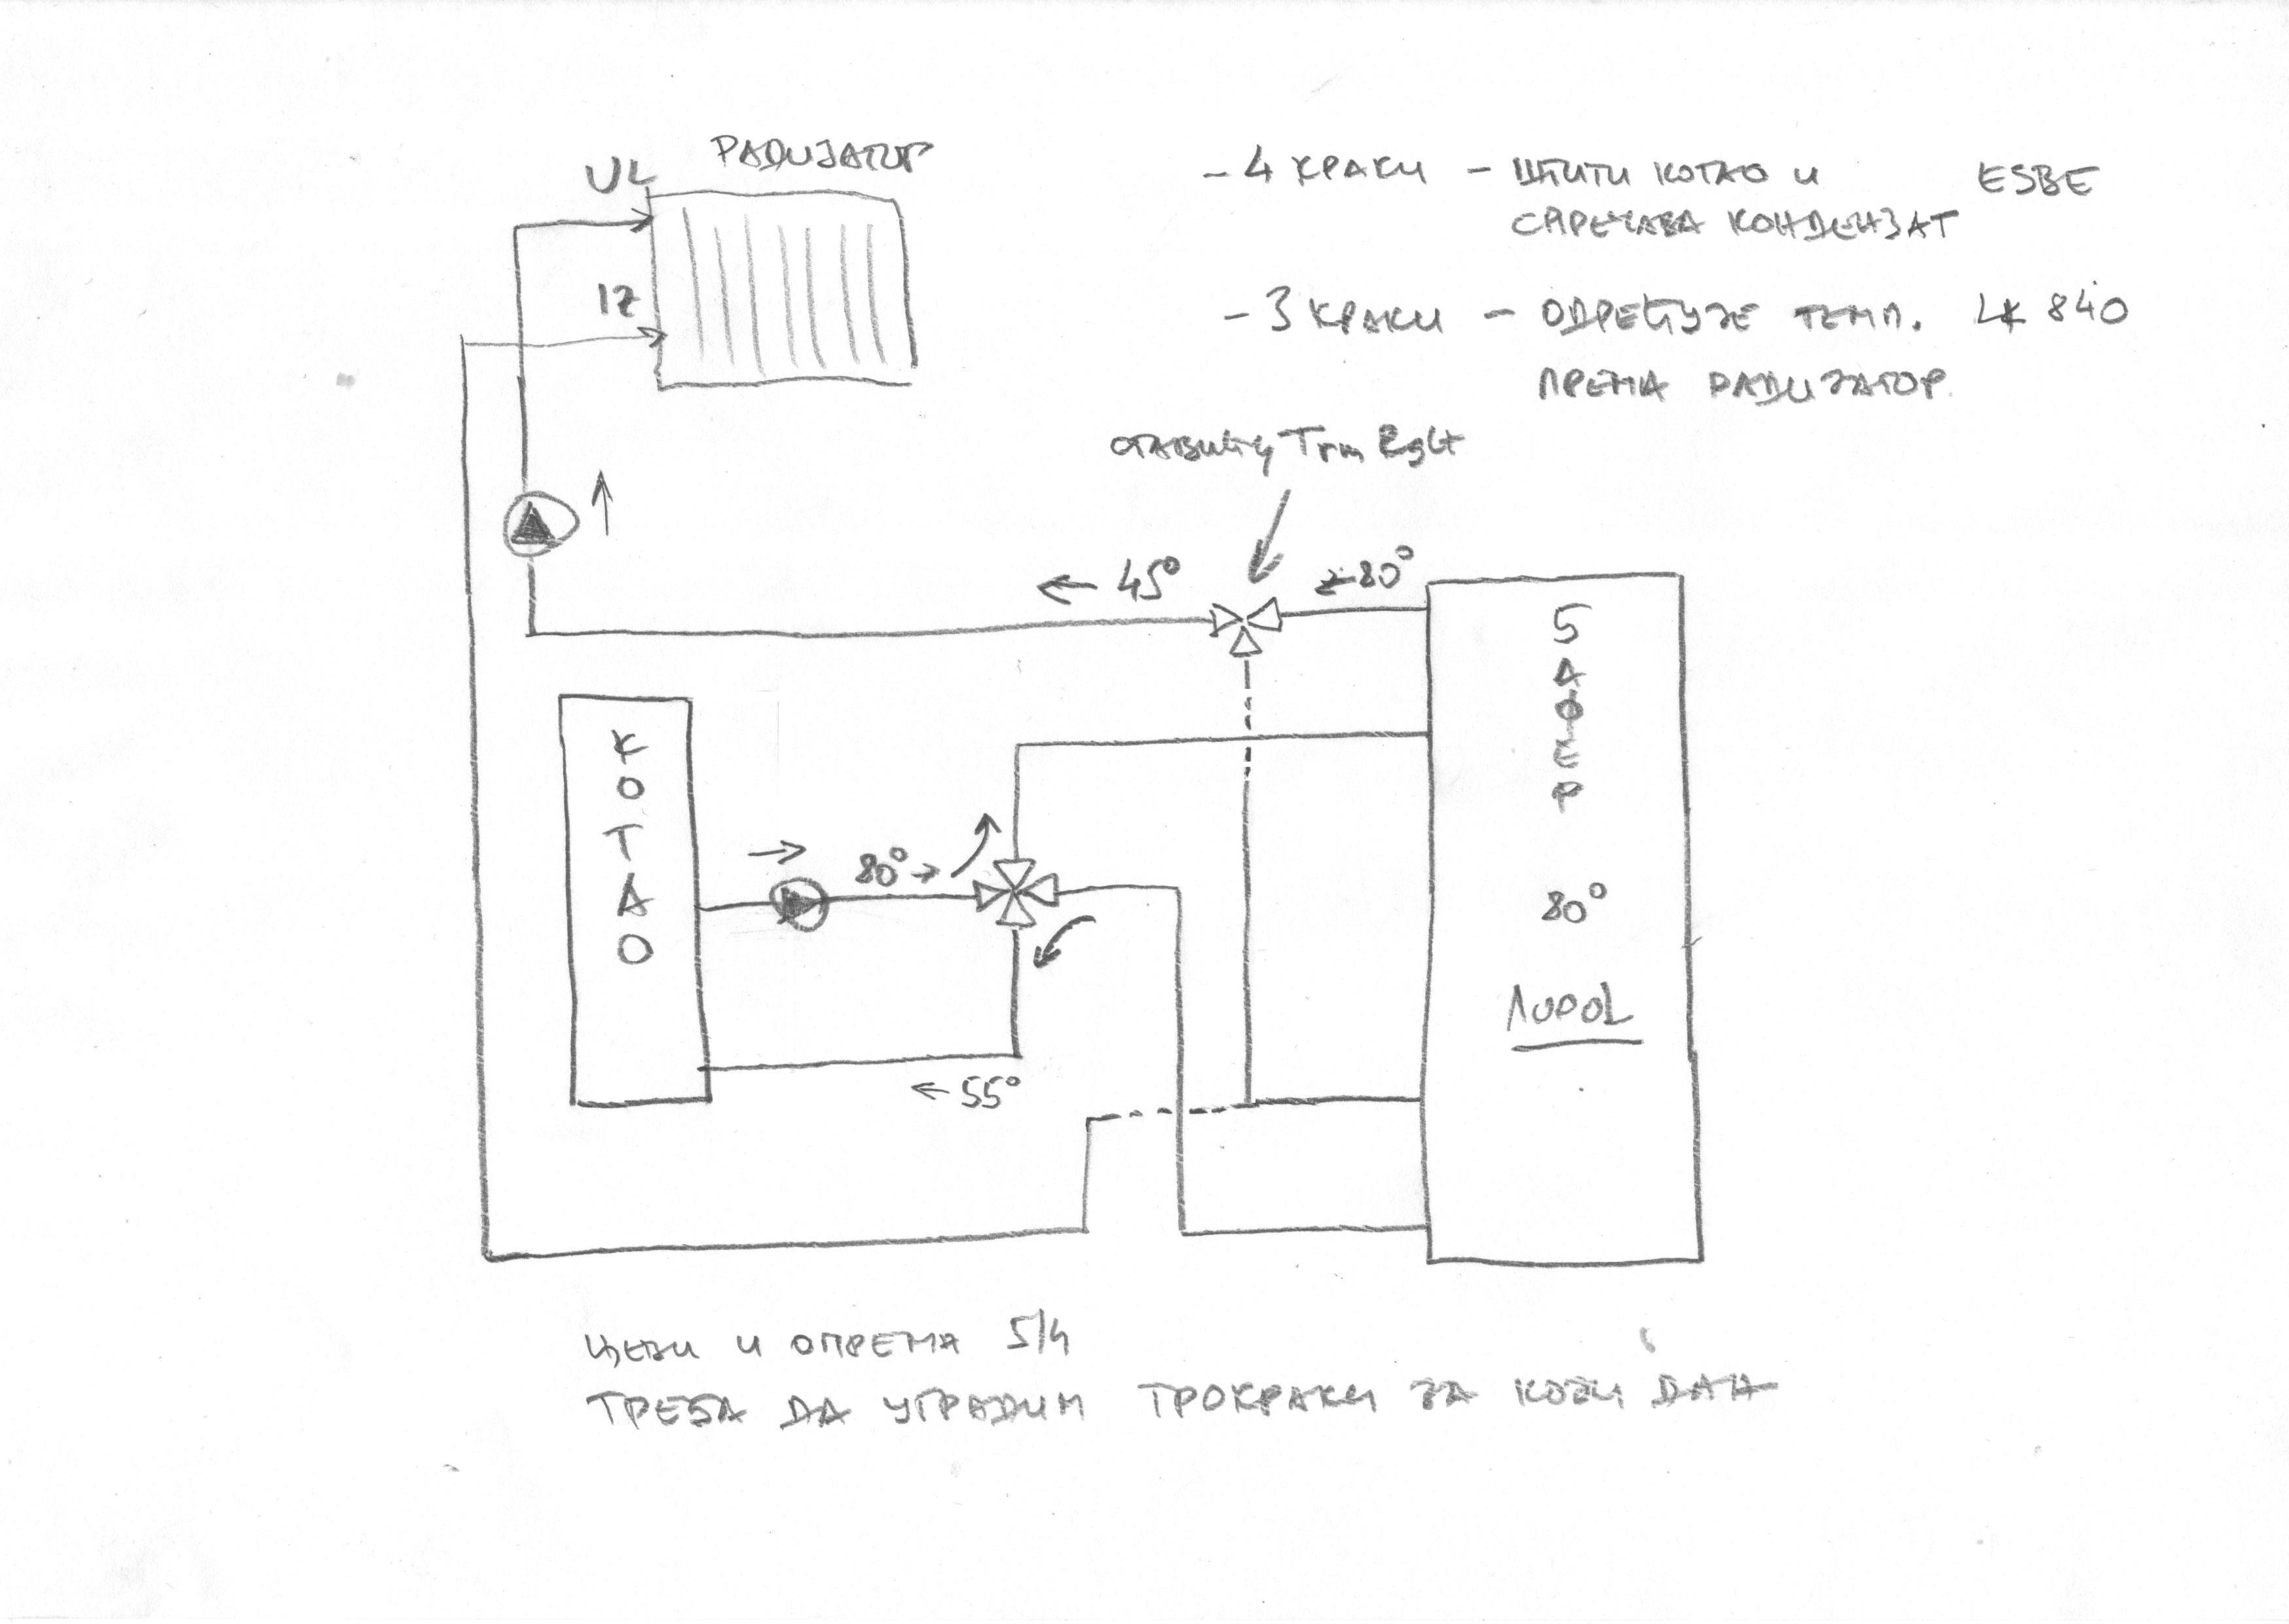 UL
РАДИЈАТОР
IZ
- 4 КРАКИ - ШТИТИ КОТАО И
СПРЕЧАВА КОНДЕНЗАТ
ESBE
- 3 КРАКИ - ОДРЕЂУЈЕ ТЕМП.
ПРЕМА РАДИЈАТОР.
LK 840
СТАВИЋУ
← 45°
← 80°
БАФЕР
80°
КОТАО
→
80° →
← 55°
ЦЕВИ И ОПРЕМА 5/4
ТРЕБА ДА УГРАДИМ ТРОКРАКИ ЗА КОЈИ ДАН